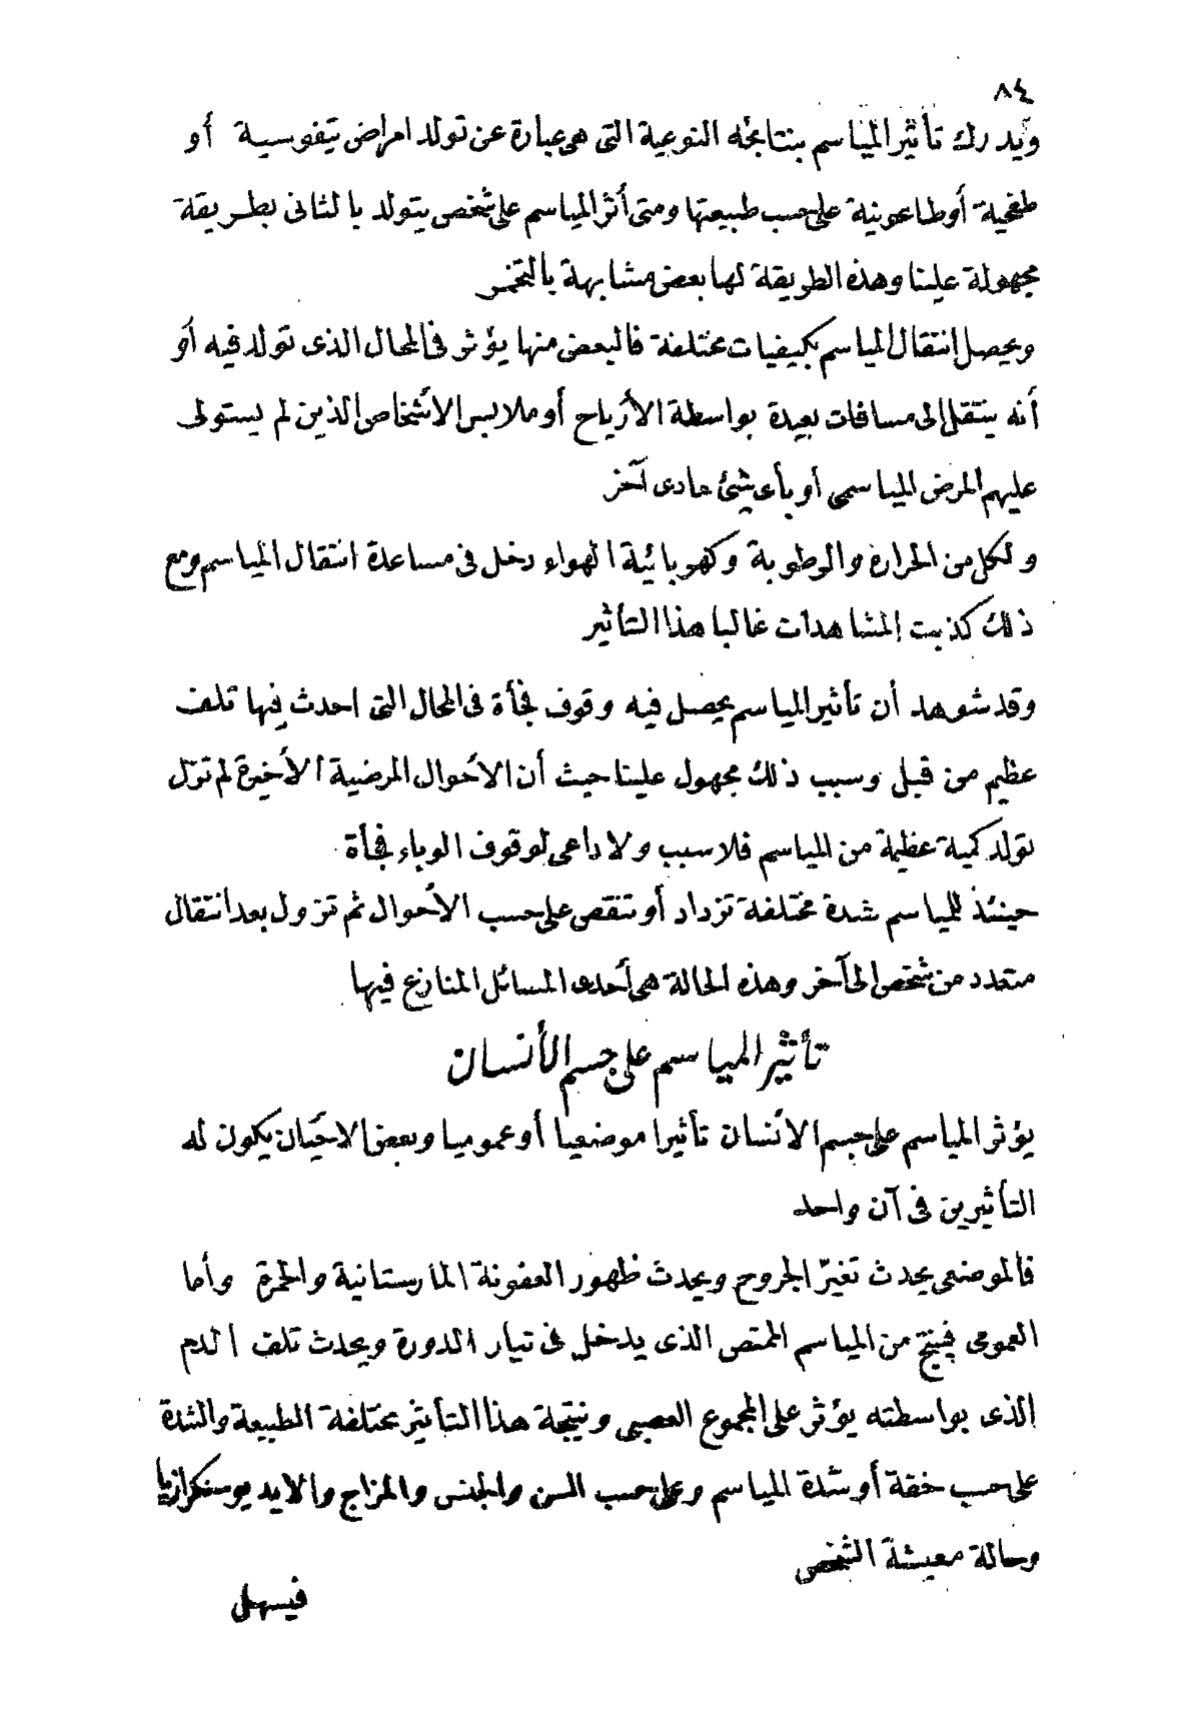 ٨٤
ويدرك تأثير المياسم بنتايجه النوعية التى هى عبارة عن تولد امراض تيفوسية أو
طفحية أو طاعونية على حسب طبيعتها ومتى أثر المياسم على شخص يتولد بالثانى بطريقة
مجهولة علينا وهذه الطريقة لها بعض مشابهة بالتخمر
ويحصل إنتقال المياسم بكيفيات مختلفة فالبعض منها يؤثر فى المحال الذى تولد فيه أو
أنه ينتقل إلى مسافات بعيدة بواسطة الأرياح أو ملابس الأشخاص الذين لم يستولى
عليهم المرض المياسمى أو بأى شيئ مادى آخر
ولكل من الحرارة والرطوبة وكهربائية الهواء دخل فى مساعدة انتقال المياسم ومع
ذلك كذبت المشاهدات غالبا هذا التأثير
وقد شوهد أن تأثير المياسم يحصل فيه وقوف فجأة فى المحال التى احدث فيها تلف
عظيم من قبل وسبب ذلك مجهول علينا حيث أن الأحوال المرضية الأخيرة لم تزل
تولد كمية عظيمة من المياسم فلا سبب ولا داعى لوقوف الوباء فجأة
حينئذ للمياسم شدة مختلفة تزداد أو تنقص على حسب الأحوال ثم تزول بعد انتقال
متعدد من شخص الى آخر وهذه الحالة هى أحدى المسائل المنازع فيها
تأثير المياسم على جسم الأنسان
يؤثر المياسم على جسم الأنسان تأثيرا موضعيا أو عموميا وبعض الأحيان يكون له
التأثيرين فى آن واحد
فالموضعى يحدث تغيّر الجروح ويحدث ظهور العفونة المارستانية والحمرة وأما
العمومى فينتج من المياسم الممتص الذى يدخل فى تيار الدورة ويحدث تلف الدم
الذى بواسطته يؤثر على المجموع العصبى ونتيجة هذا التأثير مختلفة الطبيعة والشدة
على حسب خفة أو شدة المياسم وعلى حسب السن والجنس والمزاج والايديوسنكرازيا
وحالة معيشة الشخص
فيسهل